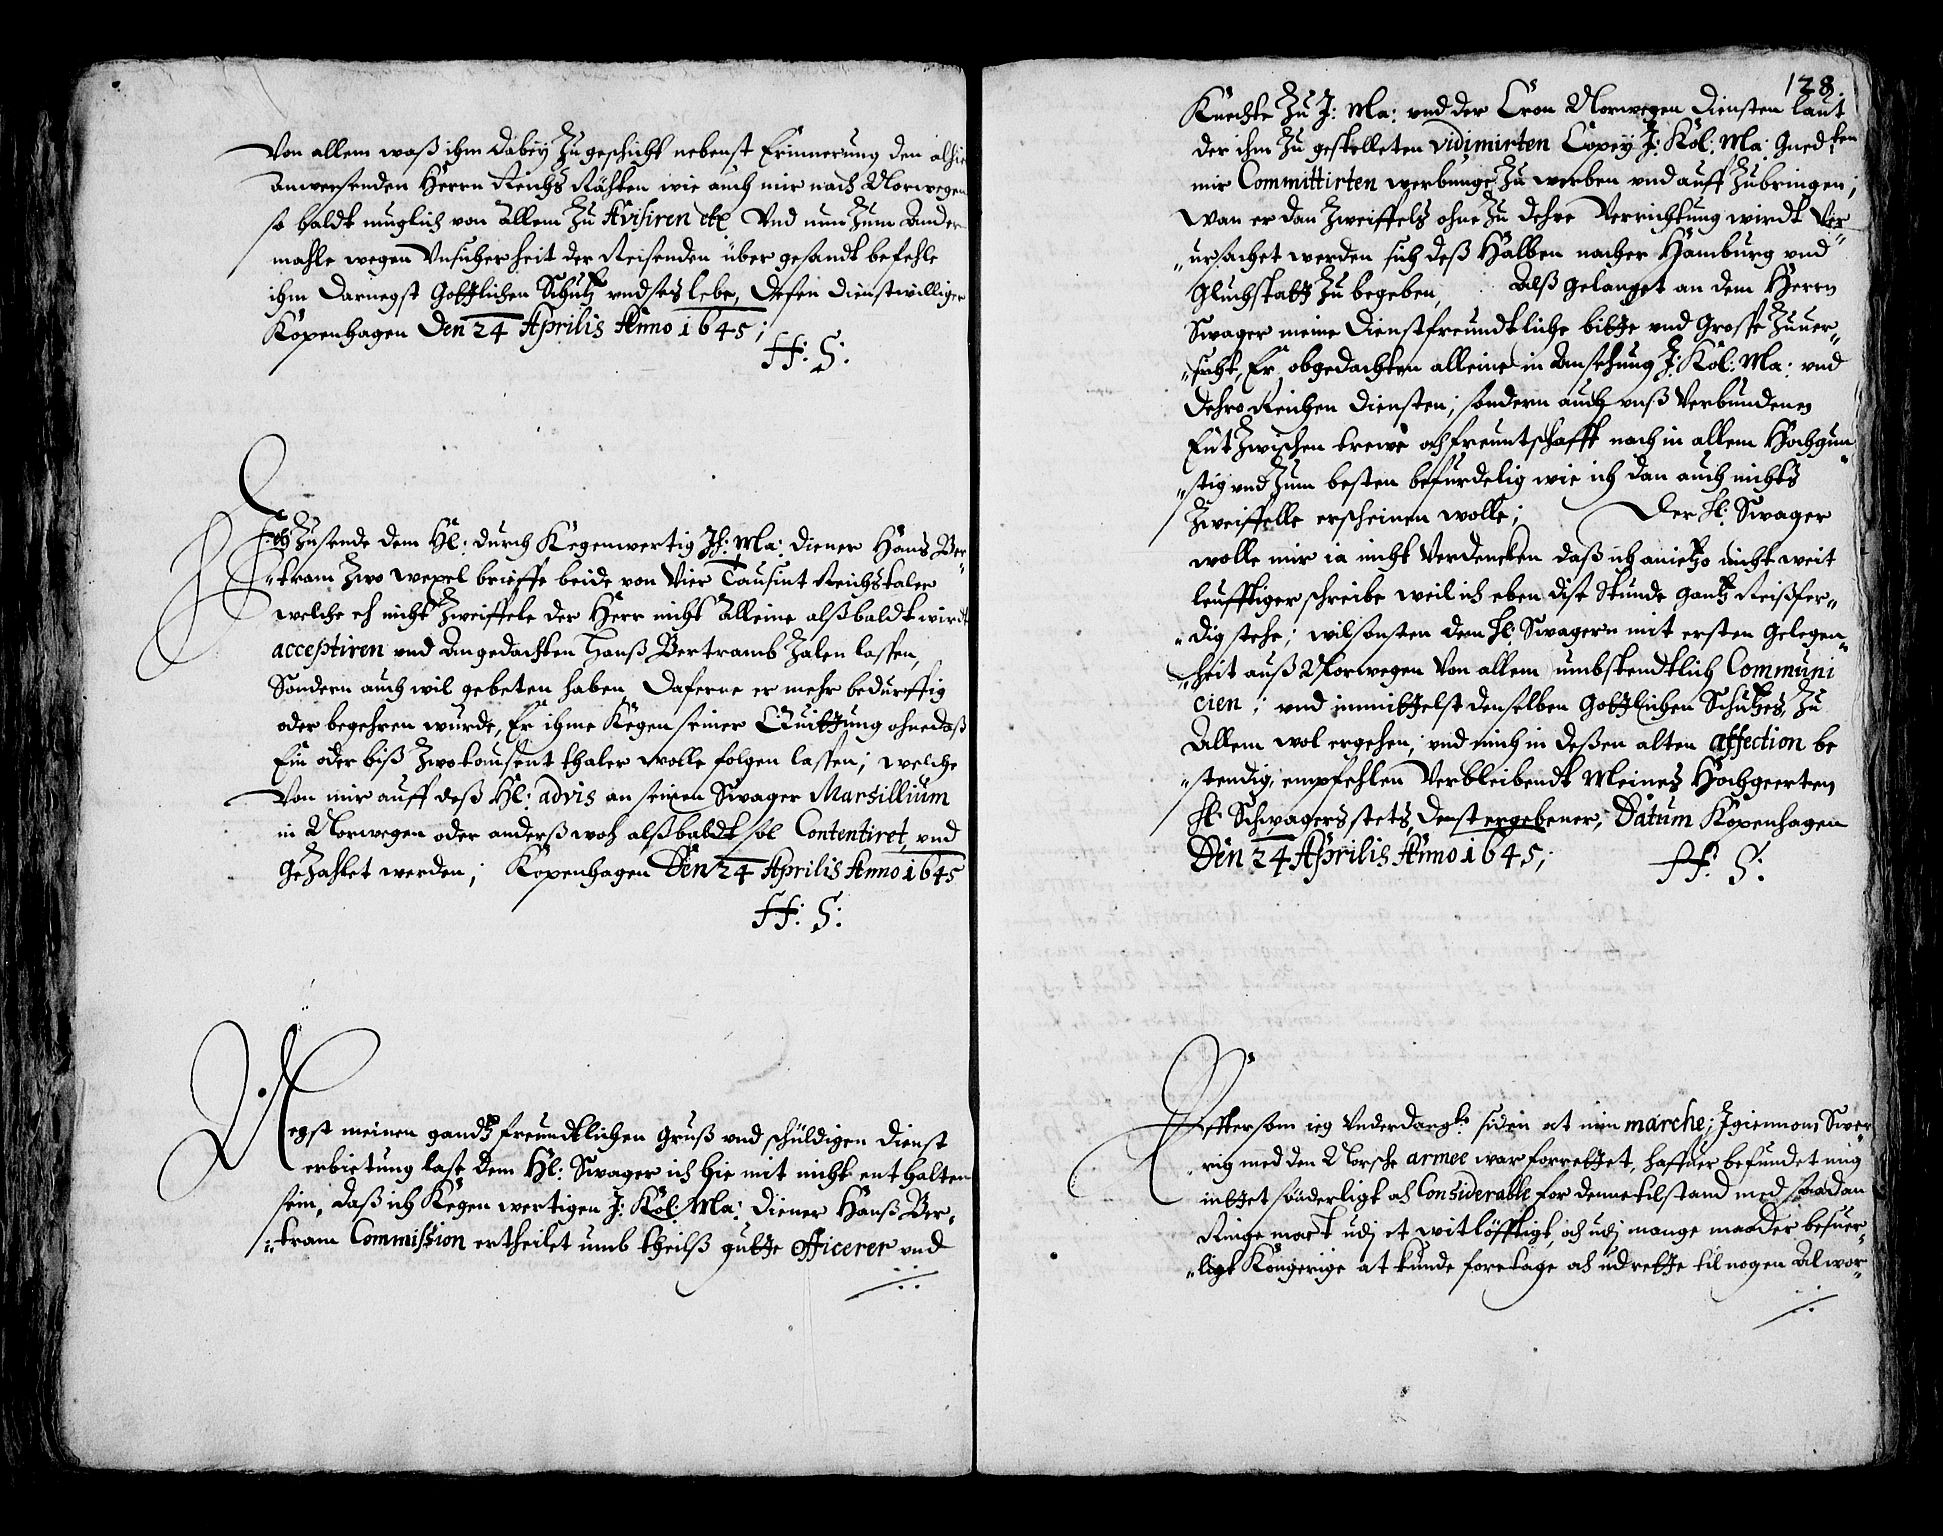 Von allem waß ihm dabeÿ zu geschickt nebenst Erinnerung den alhie
anwesenden Herrn Reichs Rähten wie auch mir nach Norwegen
so baldt muglich von allem zu Avisiren etc Vnd nun zum Ander
mahle wegen Vnsicherheit der Reisenden über gesandt befehle
ihm darnegst Gottlichen Schutz vndt lebe, deßen dienstwilliger
Kopenhagen Den 24 Aprilis Anno 1645;
H: S:
Ich zusende dem Hl: durch Kegenwertig Jh: Ma: diener Hans Ber„
„tram zwo wexel brieffe beide von Vier Tausint Reichstaler
welche ich nicht zweiffele der Herr nicht alleine alßbaldt wirdt
acceptiren vnd an gedachten Hanß Bertramb zalen lassen,
Sondern auch wil gebeten haben, daferne er mehr bedurfftig
oder begehren wurde, Er ihme Kegen seiner Quittung ohne daß
Ein oder biß zwotausent thaler wolle folgen lassen; welche
Von mir auff deß Hl: advis an seinen Swager Marsillium
in Norwegen oder anderßwoh alßbaldt sol Contentiret, vnd
Gezahlet werden; Kopenhagen Den 24 Aprilis Anno 1645
H: S:
Negst meinen gandtz freundtlichen Gruß vnd schüldigen dienst
erbietung last dem Hl: Swager ich hie mit nicht enthalten
sein, daß ich Kegenwertigen J: Köl: Ma: diener Hanß Ber„
„tram Commission ertheilet umb theilß gutte Officerer vnd
128.
Knechte zu J: Ma: vnd der Cron Norwegen diensten laut
der ihm zu gestelleten Vidimirten Copeÿ J: Köl: Ma: Gnedsten
mir Committirten werbunge zu werben vnd auff zubringen;
Wan er dan zweiffels ohne zu dehre Verrichtung wirdt Ver„
„ursachet werden sich deß Halben nacher Hamburg vnd
Gluchstatt zu begeben, Alß gelanget an dem Herrn
Swager meine dienstfreundtliche bitte vnd Grosse zuuer„
„sicht, Er obgedachten alleine in ansehung J: Köl: Ma: vnd
dehro Reichen diensten; sondern auch vnß Verbundenen
Entzwischen trewe och freuntschafft nach in allem Hochgun„
„stig vnd zum besten befurdelig wie ich dan auch nichts
Zweiffelle erscheinen wolle; Der H: Swager
wolle mir ia nicht Verdencken daß ich anietzo nicht weit
leufftiger schreibe weil ich eben dise Stunde gantz Reißfer„
„dig stehe; wil sonsten dem H: Swagern mit ersten Gelegen„
„heit auß Norwegen Von allem umbstendtlich Communi
cien; vnd immittelst denselben Gottlichen Schutzes, zu
Allem wol ergehen; vnd mich in deßen alten affection be
„stendig, empfehlen Verbleibendt Meines Hochgeerten
H: Schwagers stets, denst ergebener; Datum Kopenhagen
Den 24 Aprilis Anno 1645;
H: S:
Effter som ieg Vnderdangl: siden at min marche; Igiennom Swer
rig med den Norsche armee war forrettet, haffuer befundet mig
inttet sönderligt och Considerable for denne tilstand med saadan
Ringe mact udj et witlöfftigt, och udj mange maader besuer„
„ligt Kongerige at kunde foretage och udrette til nogen Alwor„